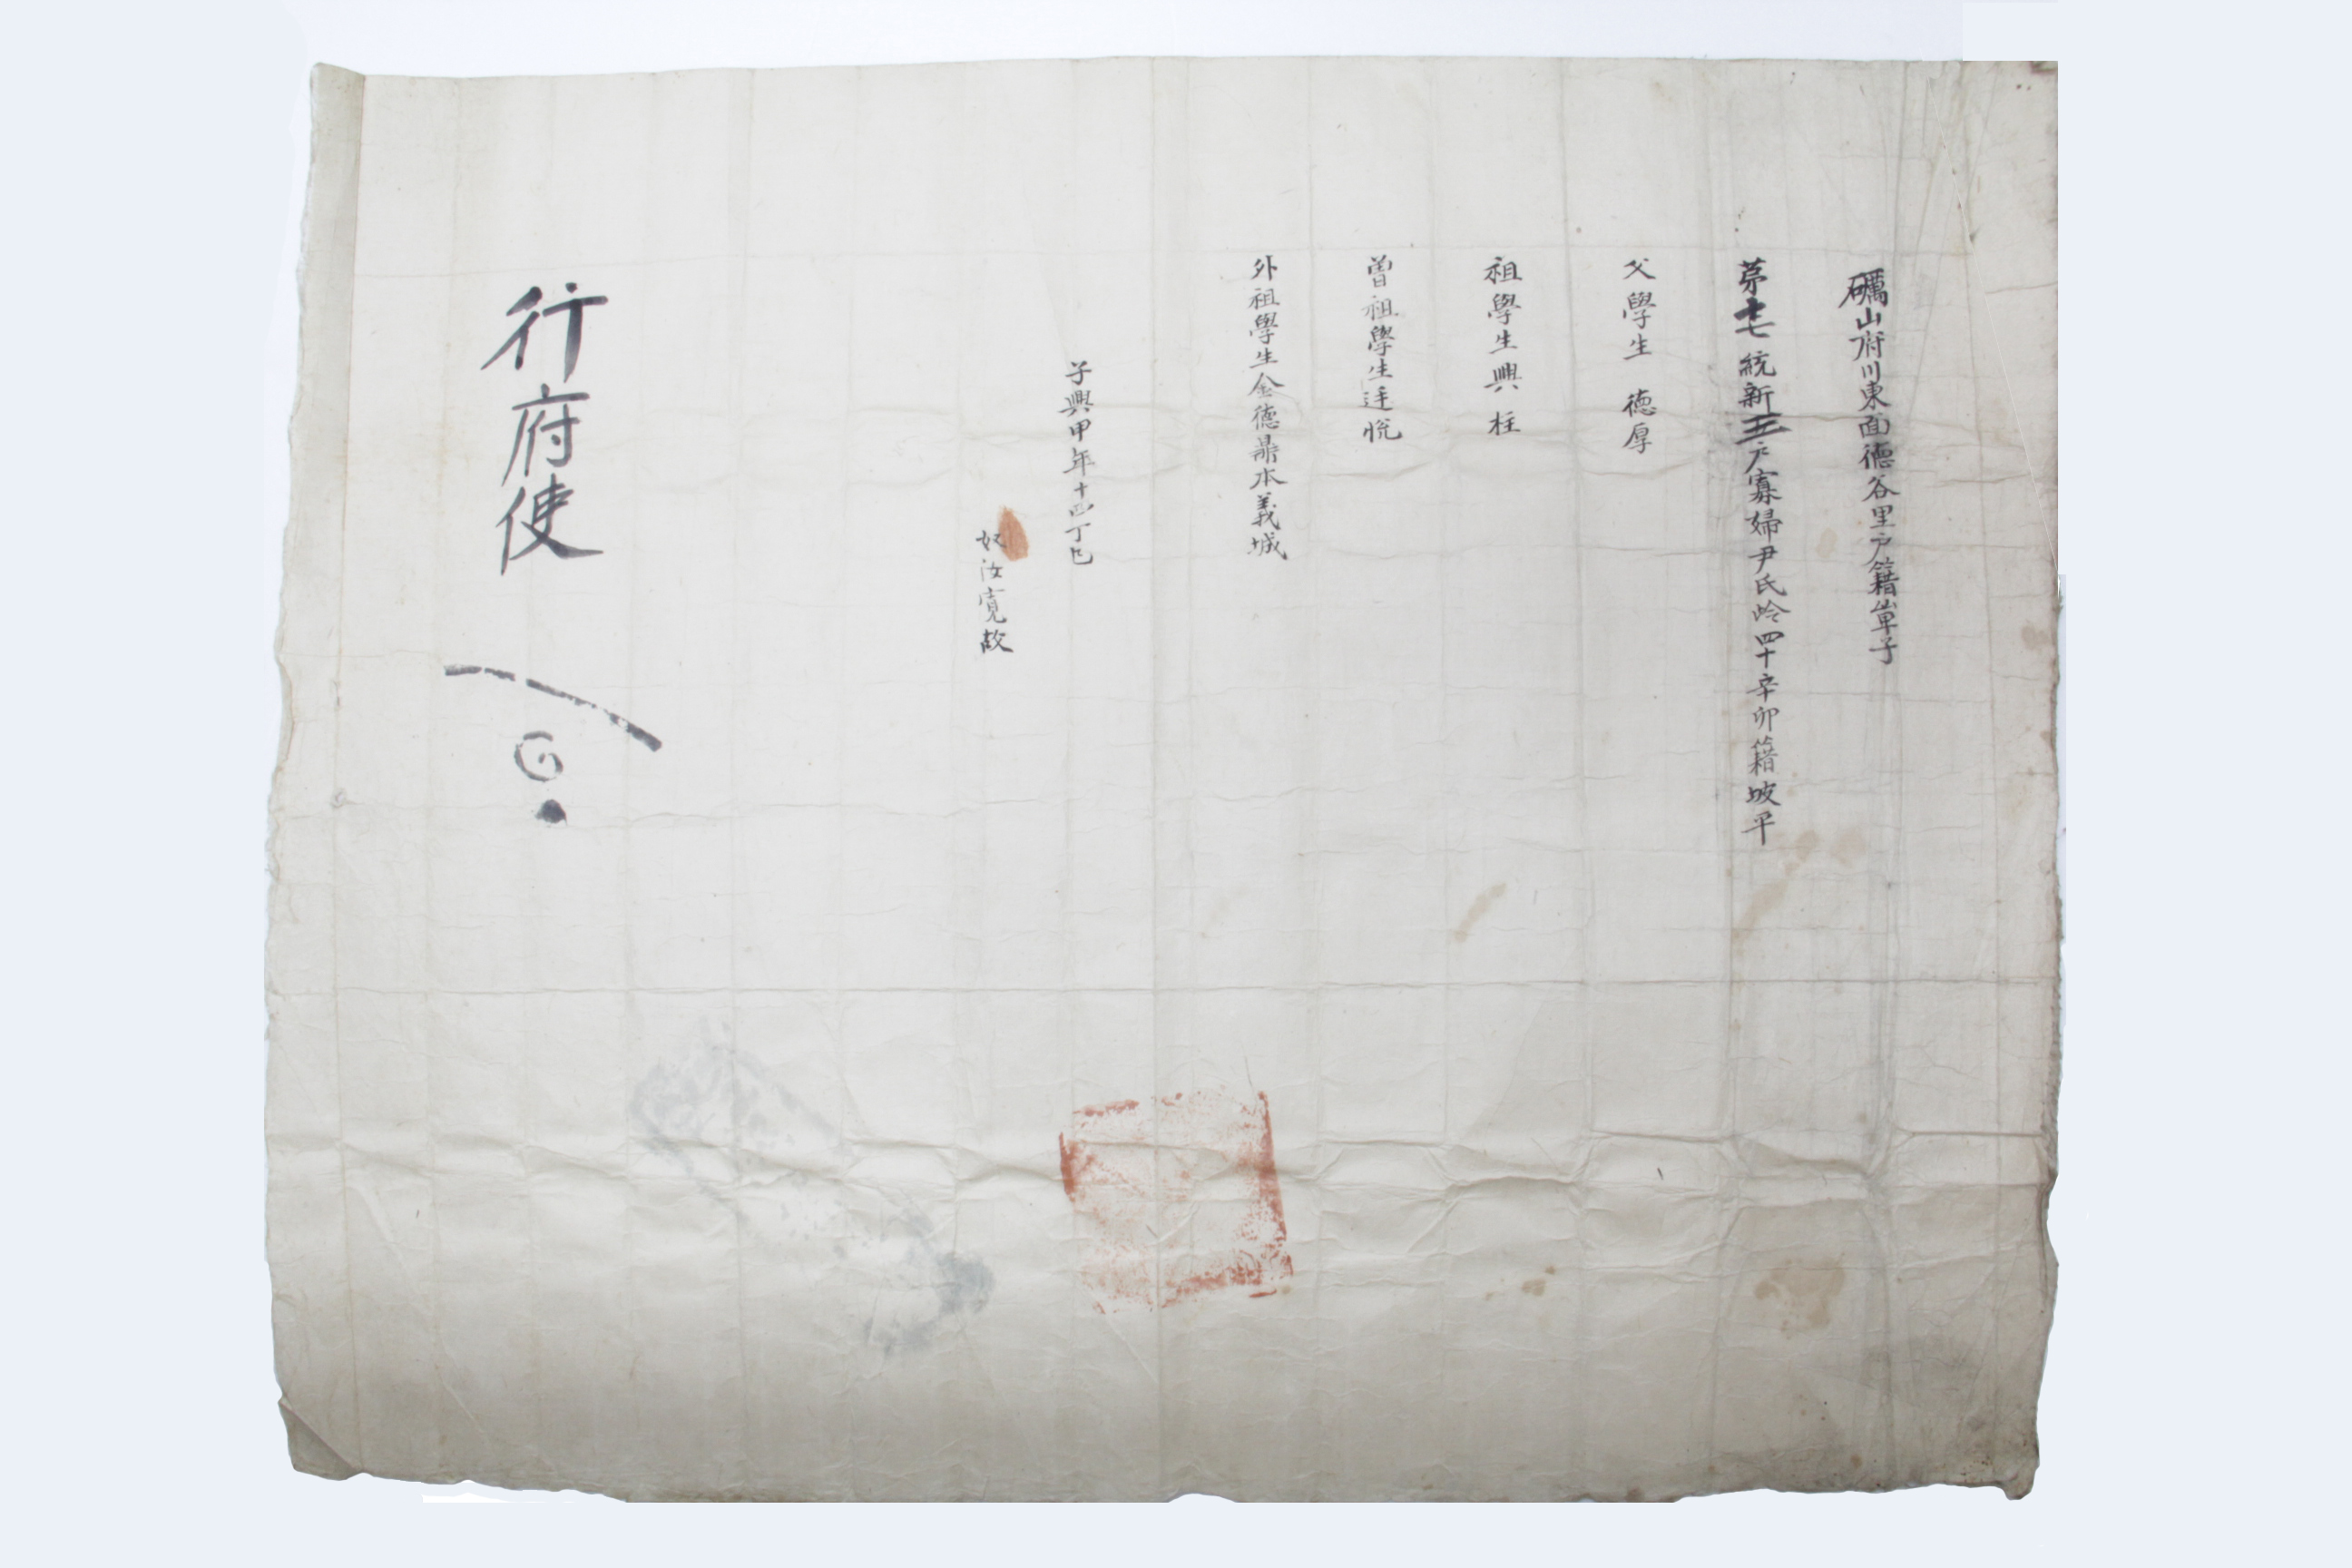 礪山府川東面德谷里戶籍單子
第十七統新五戶寡婦尹氏岭四十辛卯籍坡平
父學生 德厚
祖學生興柱
曾祖學生廷悅
外祖學生金德鼎本義城
子興甲年十四丁巳
奴汝寬故
行府使